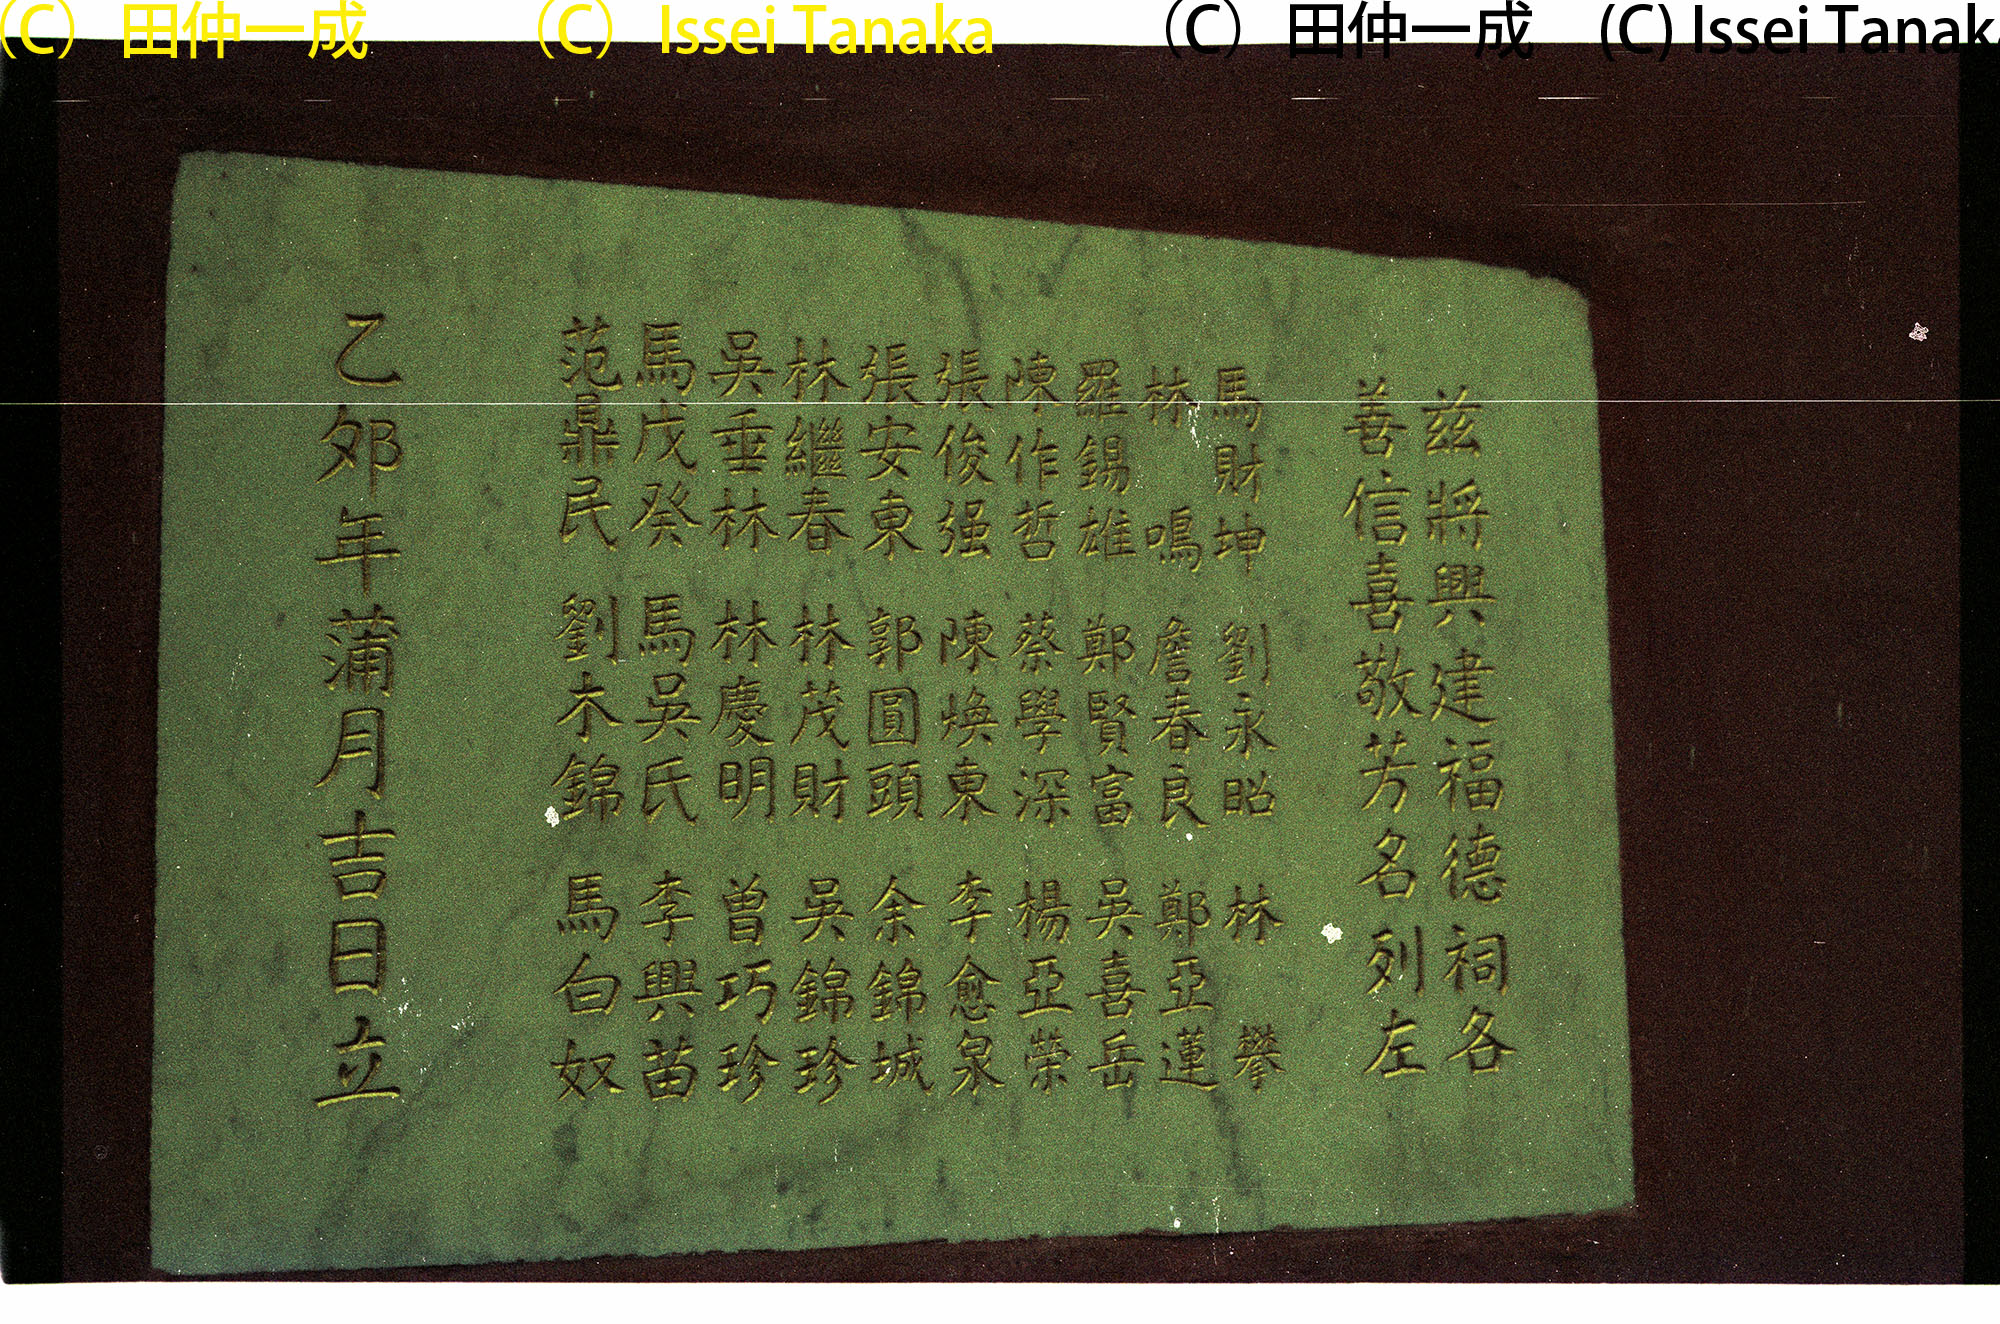 (C) 田仲一成 (C) Issei Tanaka (C) 田仲一成 (C) Issei Tanak
兹將興建福德祠各
善信喜敬芳名列左
馬財坤 劉永昭 林攀
林鳴 詹春良 鄭亞蓮
羅錫雄 鄭賢富 吳喜岳
陳作哲 蔡學深 楊亞榮
張俊强 陳煥東 李愈泉
張安東 郭圓頭 余錦城
林繼春 林茂財 吳錦珍
吳垂林 林慶明 曾巧珍
馬戊癸 馬吳氏 李興苗
范鼎民 劉木錦 馬白奴
乙夘年蒲月吉日立